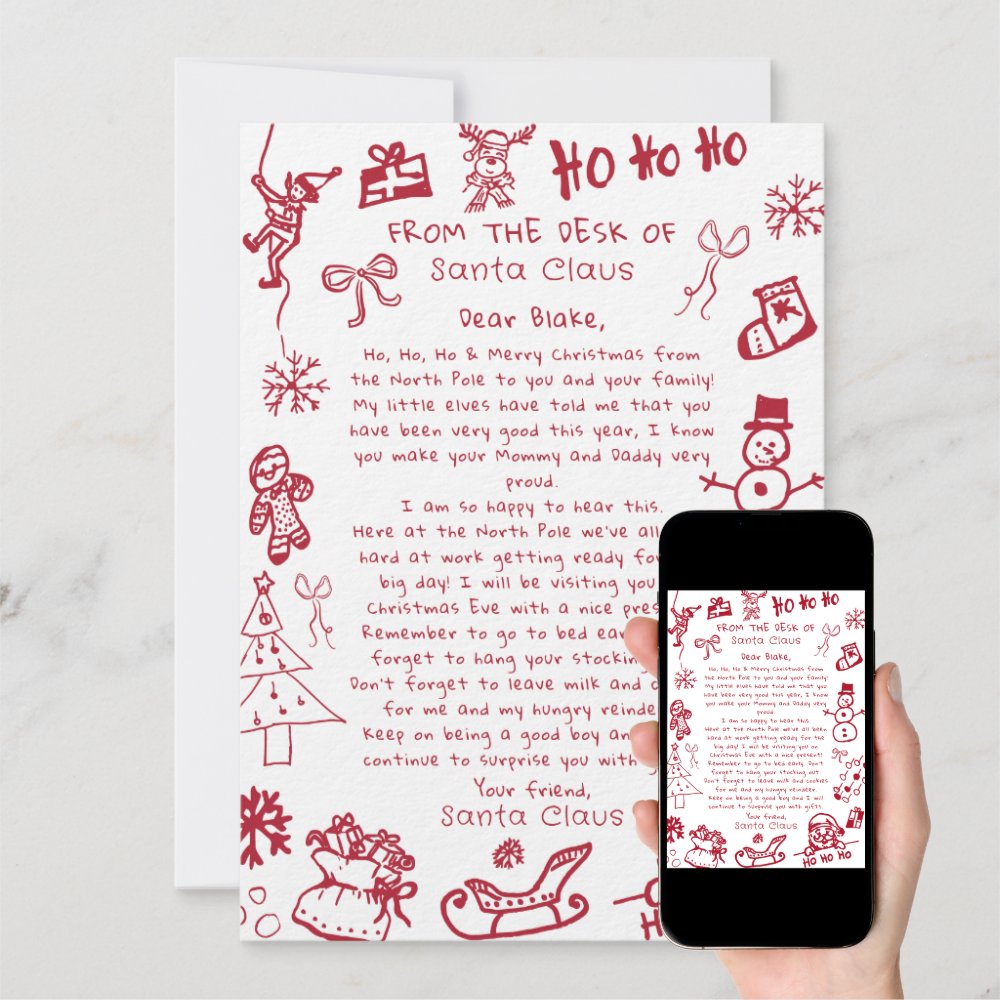 HO HO HO
FROM THE DESK OF
Santa Claus
Dear Blake,
Ho, Ho, Ho & Merry Christmas from
the North Pole to you and your family!
My little elves have told me that you
have been very good this year, I know
you make your Mommy and Daddy very
proud.
I am so happy to hear this.
Here at the North Pole we've all
hard at work getting ready fo
big day! I will be visiting you
Christmas Eve with a nice pres
Remember to go to bed ea
forget to hang your stocking
Don't forget to leave milk and
for me and my hungry reinde
Keep on being a good boy an
continue to surprise you with
Your friend,
Santa Claus
HO HO HO
FROM THE DESK OF
Santa Claus
Dear Blake,
Ho, Ho, Ho & Merry Christmas from
the North Pole to you and your family!
My little elves have told me that you
have been very good this year, I know
you make your Mommy and Daddy very
proud.
I am so happy to hear this.
Here at the North Pole we've all been
hard at work getting ready for the
big day! I will be visiting you on
Christmas Eve with a nice present!
Remember to go to bed early. Don't
forget to hang your stocking out.
Don't forget to leave milk and cookies
for me and my hungry reindeer.
Keep on being a good boy and I will
continue to surprise you with gifts.
Your friend,
Santa Claus
HO HO HO